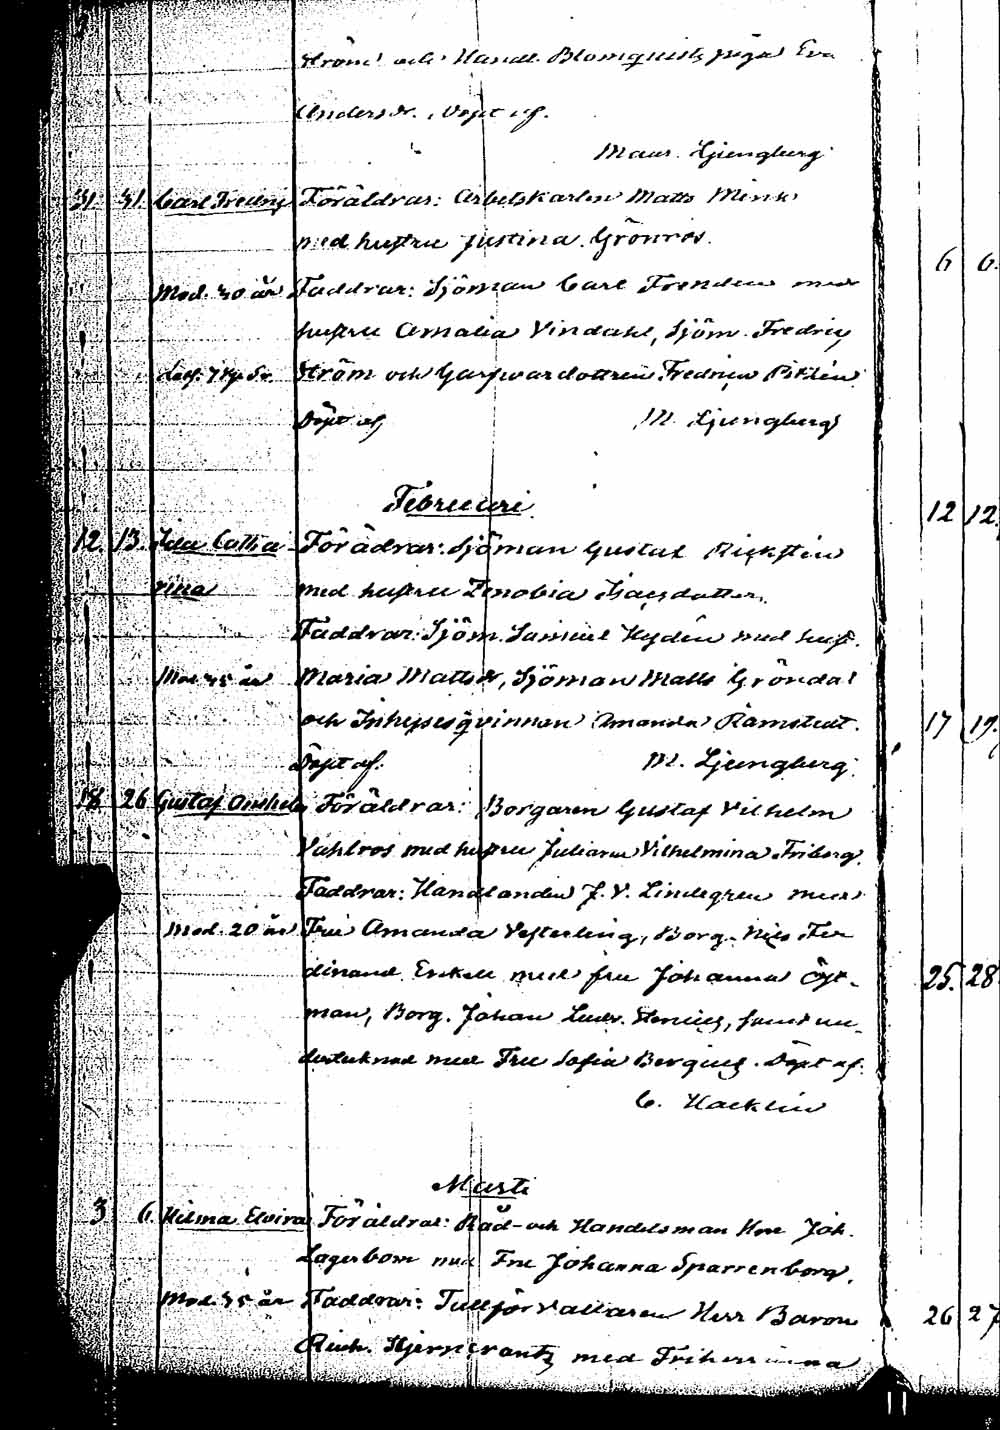 ström och Handl. Blomquists piga Eva
Andersdr. Döpt af.
Maur. Ljungberg
31. 31. Carl Fredric Föräldrar: Arbetskarlen Matts Mink
med hustru Justina Grönros.
Mod. 30 år Faddrar: Sjöman Carl Frendén med
hustru Amalia Vindahl, Sjöm. Fredric
Ström och Garfvardottren Fredrica
Döpt af M. Ljungberg
Februari
12. 13. Ida Catha Förädrar: Sjöman Gustaf Rickstén
rina med hustru Zenobia Isacsdotter.
Faddrar: Sjöm. Samuel Hydén med hust.
Mod 35 år Maria Mattsdr, Sjöman Matts Gröndal
och Inhysesqvinnan Amanda Ramstedt.
Döpt af. M. Ljungberg.
18 26 Gustaf Föräldrar: Borgaren Gustaf Vilhelm
Vahlros med hustru Juliana Vilhelmina Friberg.
Faddrar: Handlanden J. V. Lindegren med
Mod. 20 år Fru Amanda Vesterling, Borg. Nils Fer
dinand Enkell med fru Johanna Öst-
man, Borg. Johan Ludv. samt un-
dertecknad med Fru Sofia Bergius. Döpt af.
C. Hacklin
Marti
3 6. Hilma Elvira Föräldrar: Råd- och Handelsman Herr Joh.
Lagerbom med Fru Johanna Sparrenborg.
Mod. 35 år Faddrar: Tullförvaltaren Herr Baron
med Friherrinna
6 6.
12 12.
17 19.
25. 28
26 27
11